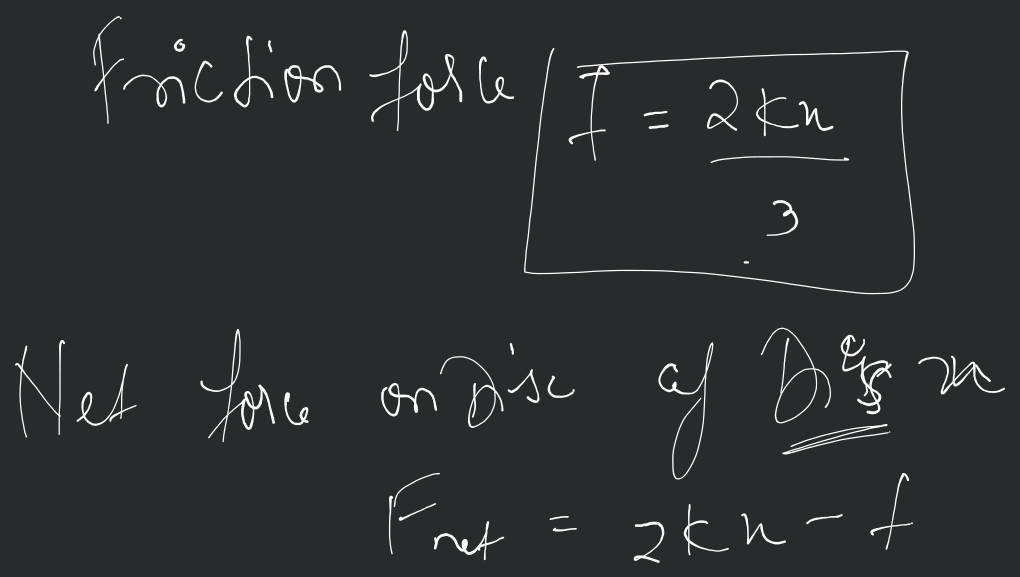 Friction force f = 2kx / 3
Net force on Disc at Dis x
Fnet = 2kx - f